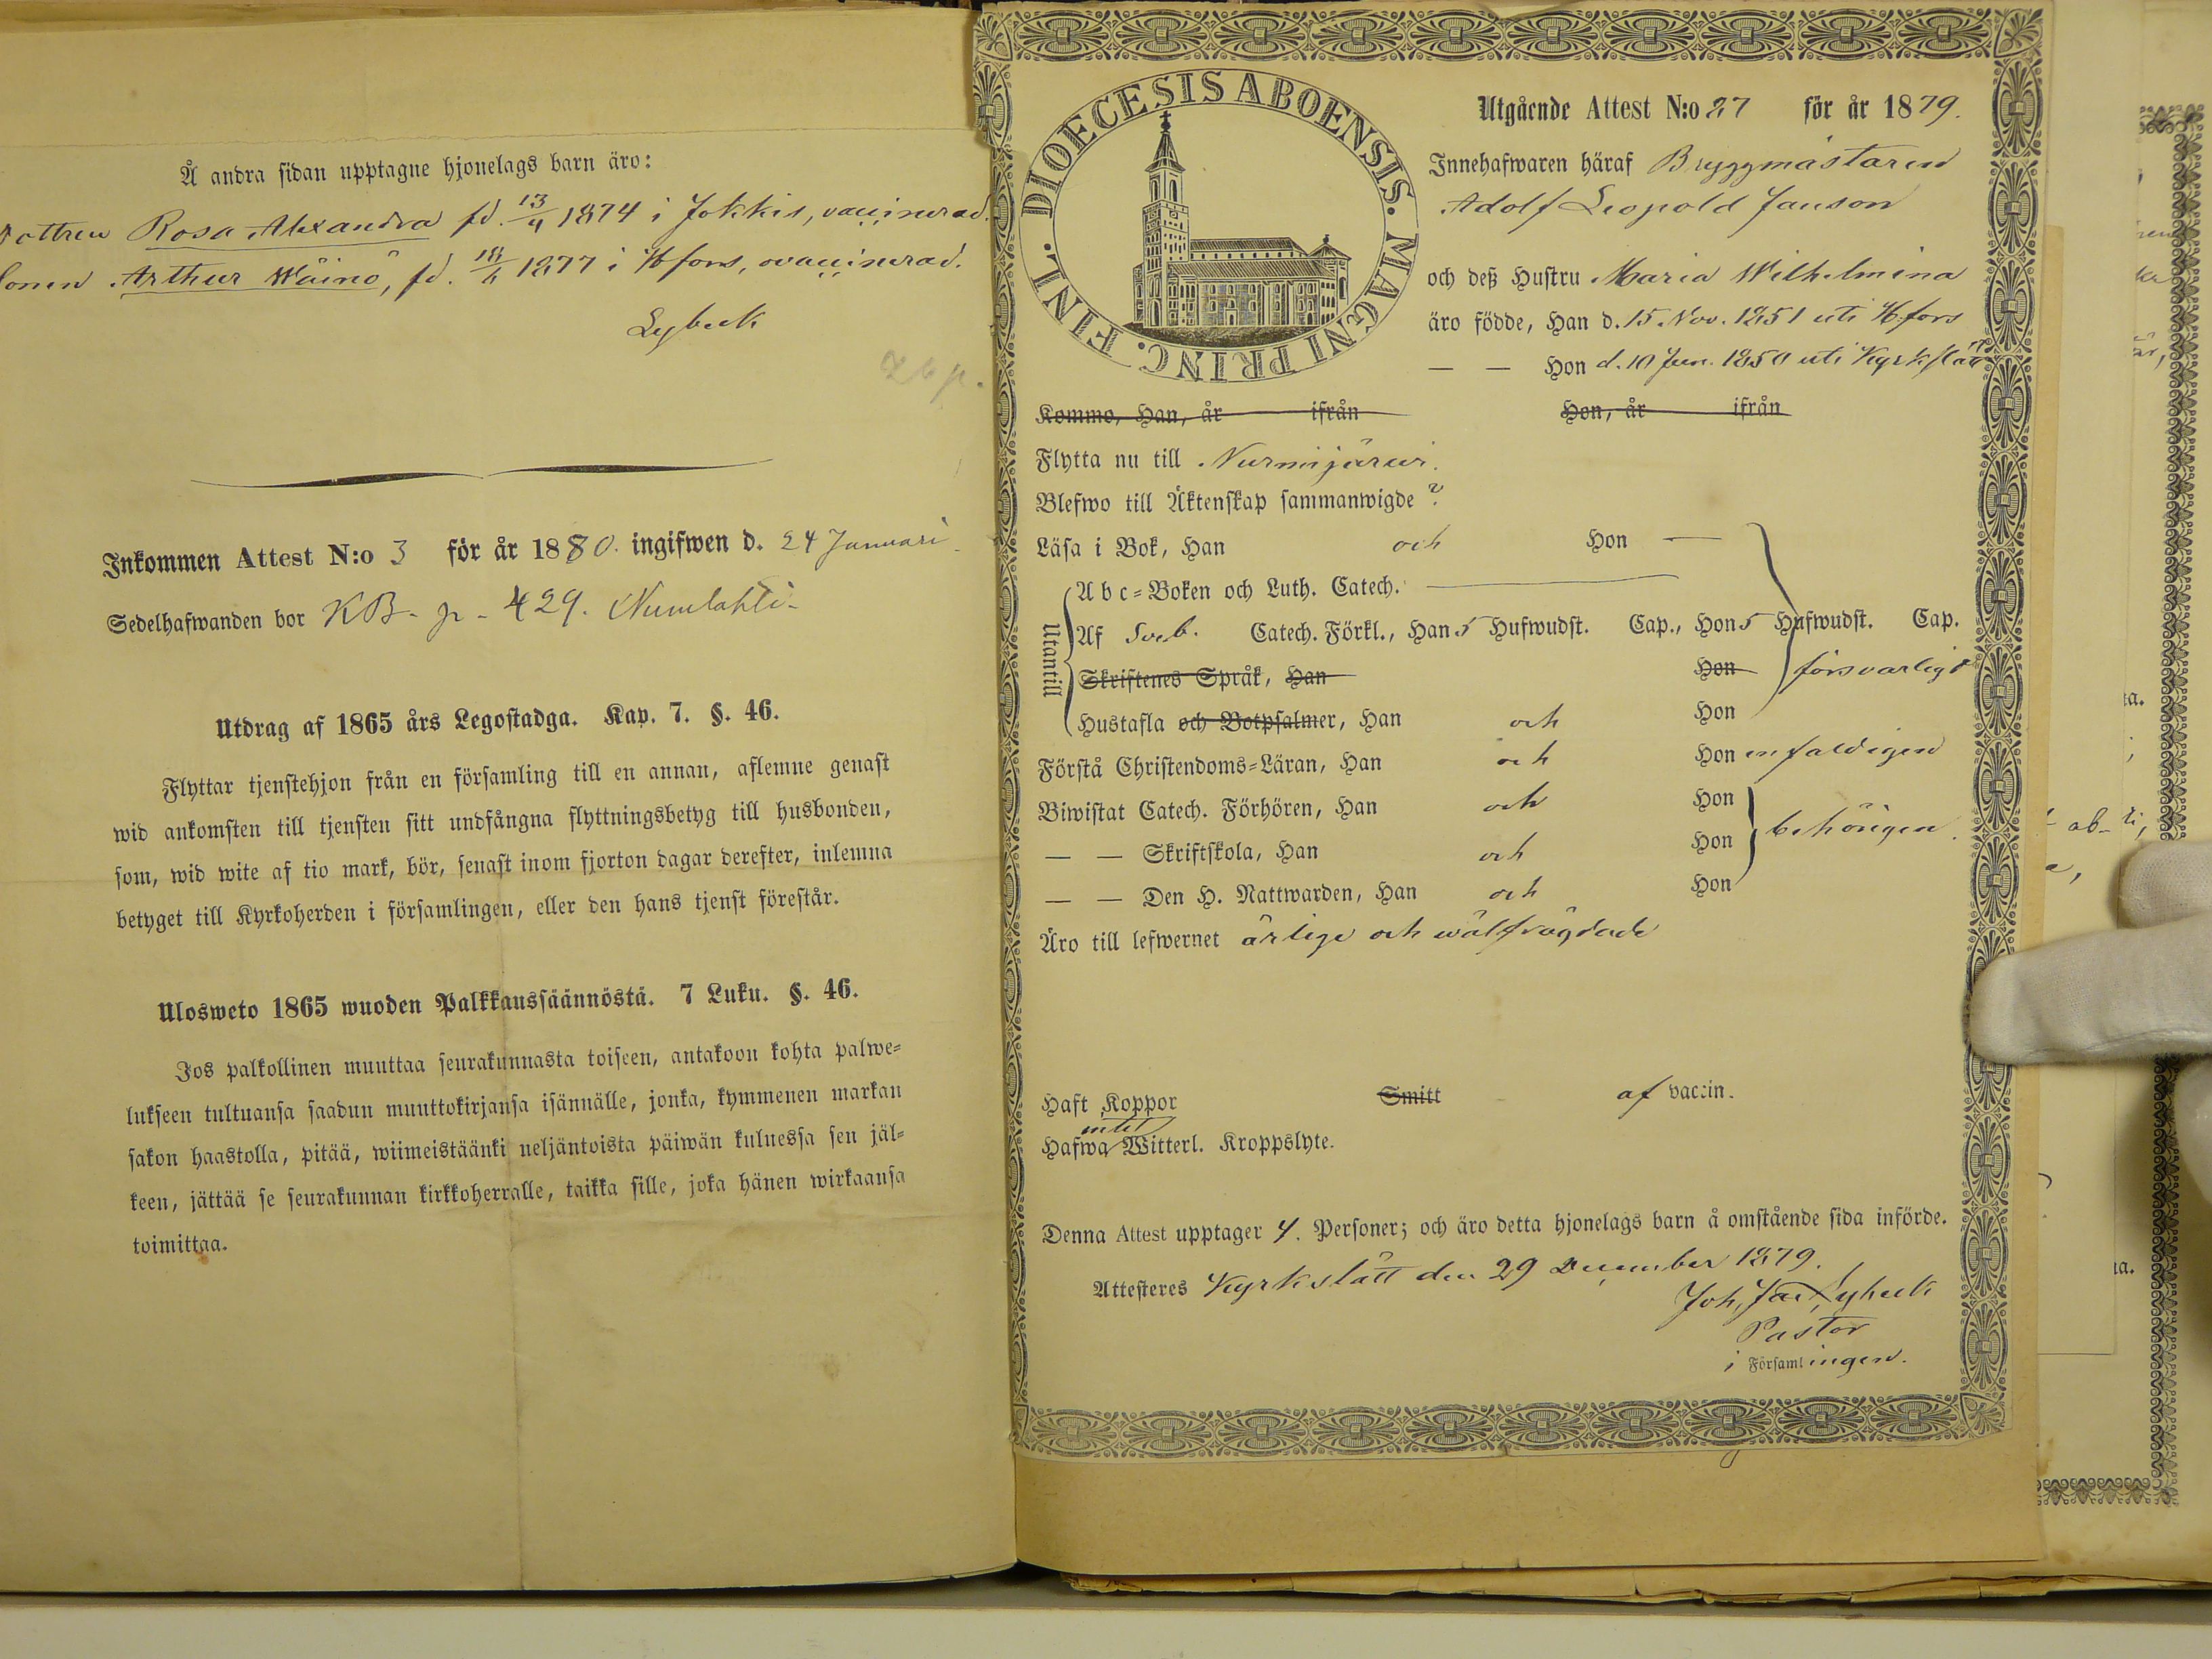 Å andra sidan upptagne hjonelags barn äro:
Dottren Rosa Alexandra fd. 13/4 1874 i Jokkis, vaccinerad.
Sonen Arthur Wäinö, fd. 18/6 1877 i Hfors, ovaccinerad.
Lybeck
Inkommen Attest N:o 3 för år 1880. ingifwen d. 24 Januari.
Sedelhafwanden bor KB. p. 429. Numlahti.
Utdrag af 1865 års Legostadga. Kap. 7. §. 46.
Flyttar tjenstehjon från en församling till en annan, aflemne genast
wid ankomsten till tjensten sitt undfångna flyttningsbetyg till husbonden,
som, wid wite af tio mark, bör, senast inom fjorton dagar derefter, inlemna
betyget till Kyrkoherden i församlingen, eller den hans tjenst förestår.
Ulosweto 1865 wuoden Palkkaussäännöstä. 7 Luku. §. 46.
Jos palkollinen muuttaa seurakunnasta toiseen, antakoon kohta palwe=
lukseen tultuansa saadun muuttokirjansa isännälle, jonka, kymmenen markan
sakon haastolla, pitää, wiimeistäänki neljäntoista päiwän kuluessa sen jäl=
keen, jättää se seurakunnan kirkkoherralle, taikka sille, joka hänen wirkaansa
toimittaa.
DIOECESIS ABOENSIS. MAGNI PRINC. FINL.
Utgående Attest N:o 27 för år 1879.
Innehafwaren häraf Bryggmästaren
Adolf Leopold Janson
och deß Hustru Maria Wilhelmina
äro födde, Han d. 15 Nov. 1851 uti Hfors
— — Hon d. 10 Jun. 1850 uti Kyrkslätt
Kommo, Han, år ifrån Hon, år ifrån
Flytta nu till Nurmijärvi.
Blefwo till Äktenskap sammanwigde ?
Läsa i Bok, Han och Hon —
Utantill
Abc=Boken och Luth. Catech. —
Af Sveb. Catech. Förkl., Han 5 Hufwudst. Cap., Hon 5 Hufwudst. Cap.
Skriftenes Språk, Han Hon försvarligt
Hustafla och Botpsalmer, Han och Hon
Förstå Christendoms=Läran, Han och Hon enfaldigen
Biwistat Catech. Förhören, Han och Hon
— — Skriftskola, Han och Hon behörigen.
— — Den H. Nattwarden, Han och Hon
Äro till lefwernet ärlige och wälfrägdade
Haft Koppor Smitt af vaccin.
intet
Hafwa Witterl. Kroppslyte.
Denna Attest upptager 4. Personer; och äro detta hjonelags barn å omstående sida införde.
Attesteres Kyrkslätt den 29 December 1879.
Joh. Jac. Lybeck
Pastor
i Församlingen.